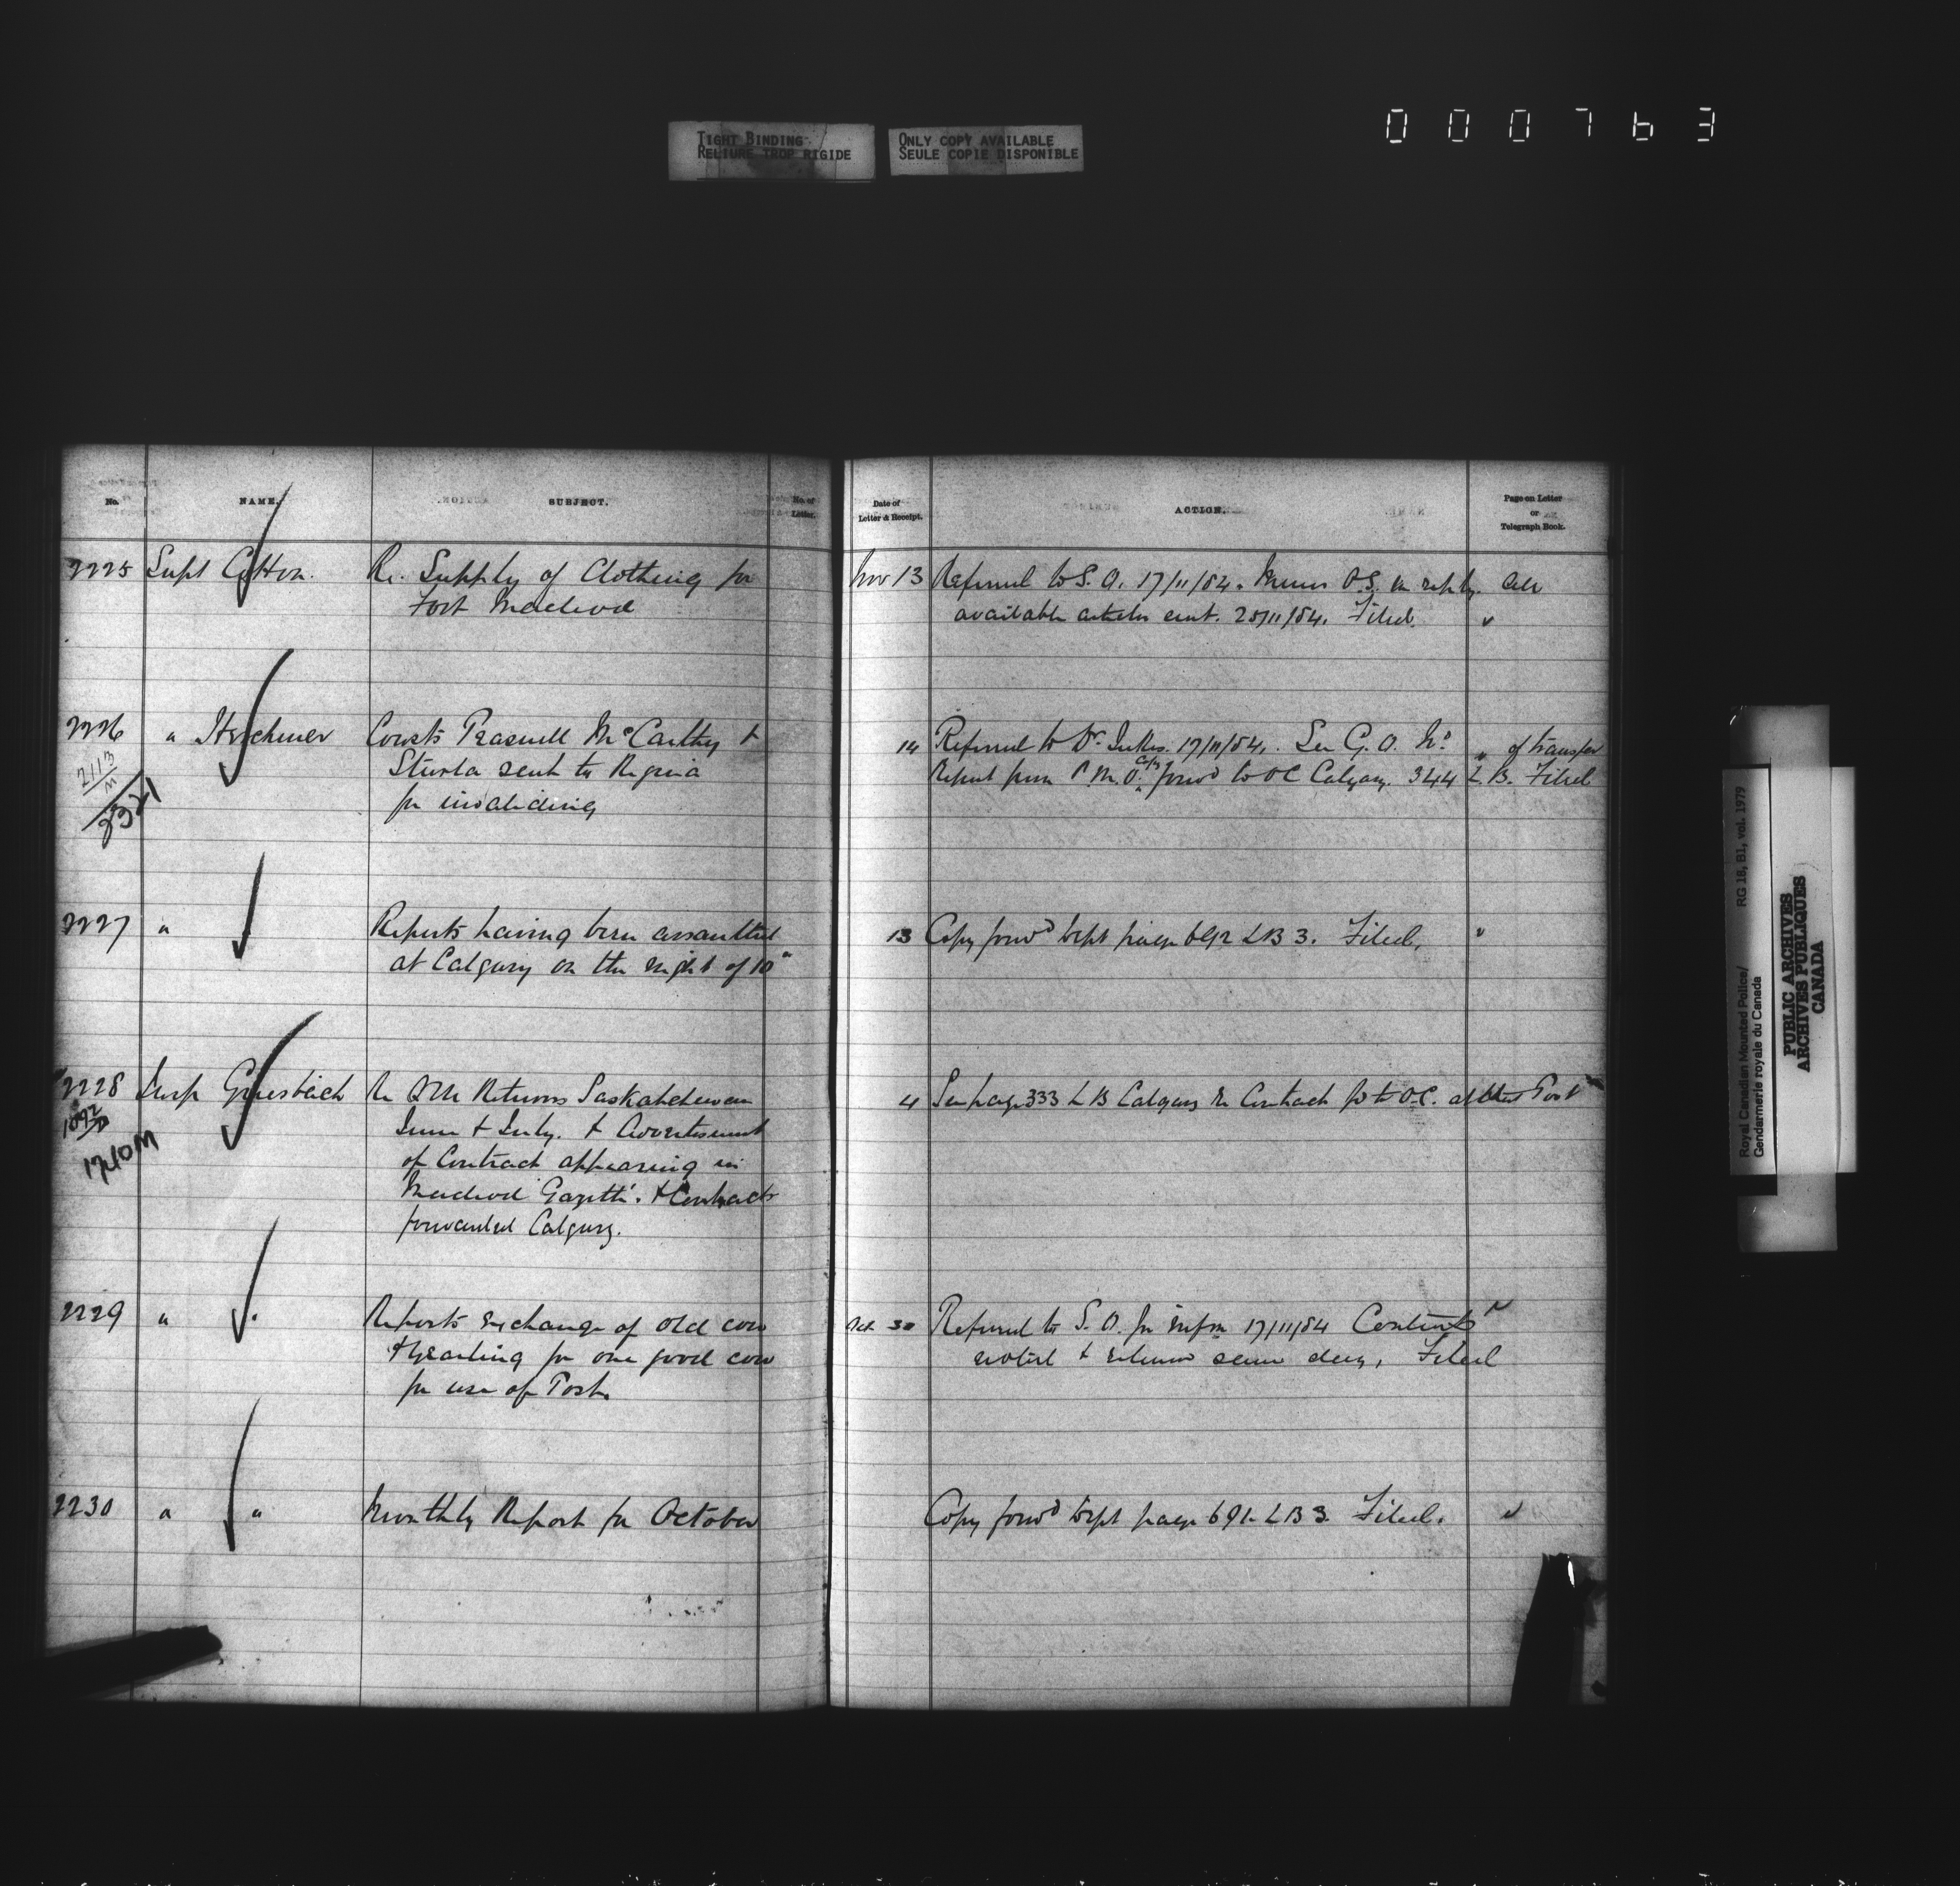 000763
TIGHT BINDING
RELIURE TROP RIGIDE
ONLY COPY AVAILABLE
SEULE COPIE DISPONIBLE
No. NAME. SUBJECT. No. of Letter.
Date of Letter & Receipt. ACTION. Page on Letter or Telegraph Book.
2225 Supt Cotton. Re. Supply of Clothing for
Fort Macleod
Nov 13 Referred to S. O. 17/11/84. Memo O.S. in reply. all
available articles sent. 25/11/84. Filed.
2226 " Herchmer Consts Peasnell McCarthy &
Sturla sent to Regina
for invaliding
2113
M
2321
14 Referred to Dr. Jukes. 17/11/84. See G. O. No. " of transfer
Report from P. M. O. forwd to OC Calgary. 344 L B. Filed
2227 " Reports having been assaulted
at Calgary on the night of 10"
13 Copy forwd Dept page 692 LB 3. Filed.
2228 Insp Griesbach Re QM Returns Saskatchewan
June & July. & Advertisement
of Contract appearing in
Macleod Gazette. & Contracts
forwarded Calgary.
1740M
4 See page 333 L B Calgary Re Contract to O.C. at that Post
2229 " " Reports exchange of old cow
& yearling for one good cow
for use of Post.
Oct 30 Referred to S. O. for infm 17/11/84 Contents
noted & returned same day. Filed
2230 " " Monthly Report for October
Copy forwd Dept page 691 LB 3. Filed.
Royal Canadian Mounted Police/
Gendarmerie royale du Canada
RG 18, B1, vol. 1979
PUBLIC ARCHIVES
ARCHIVES PUBLIQUES
CANADA